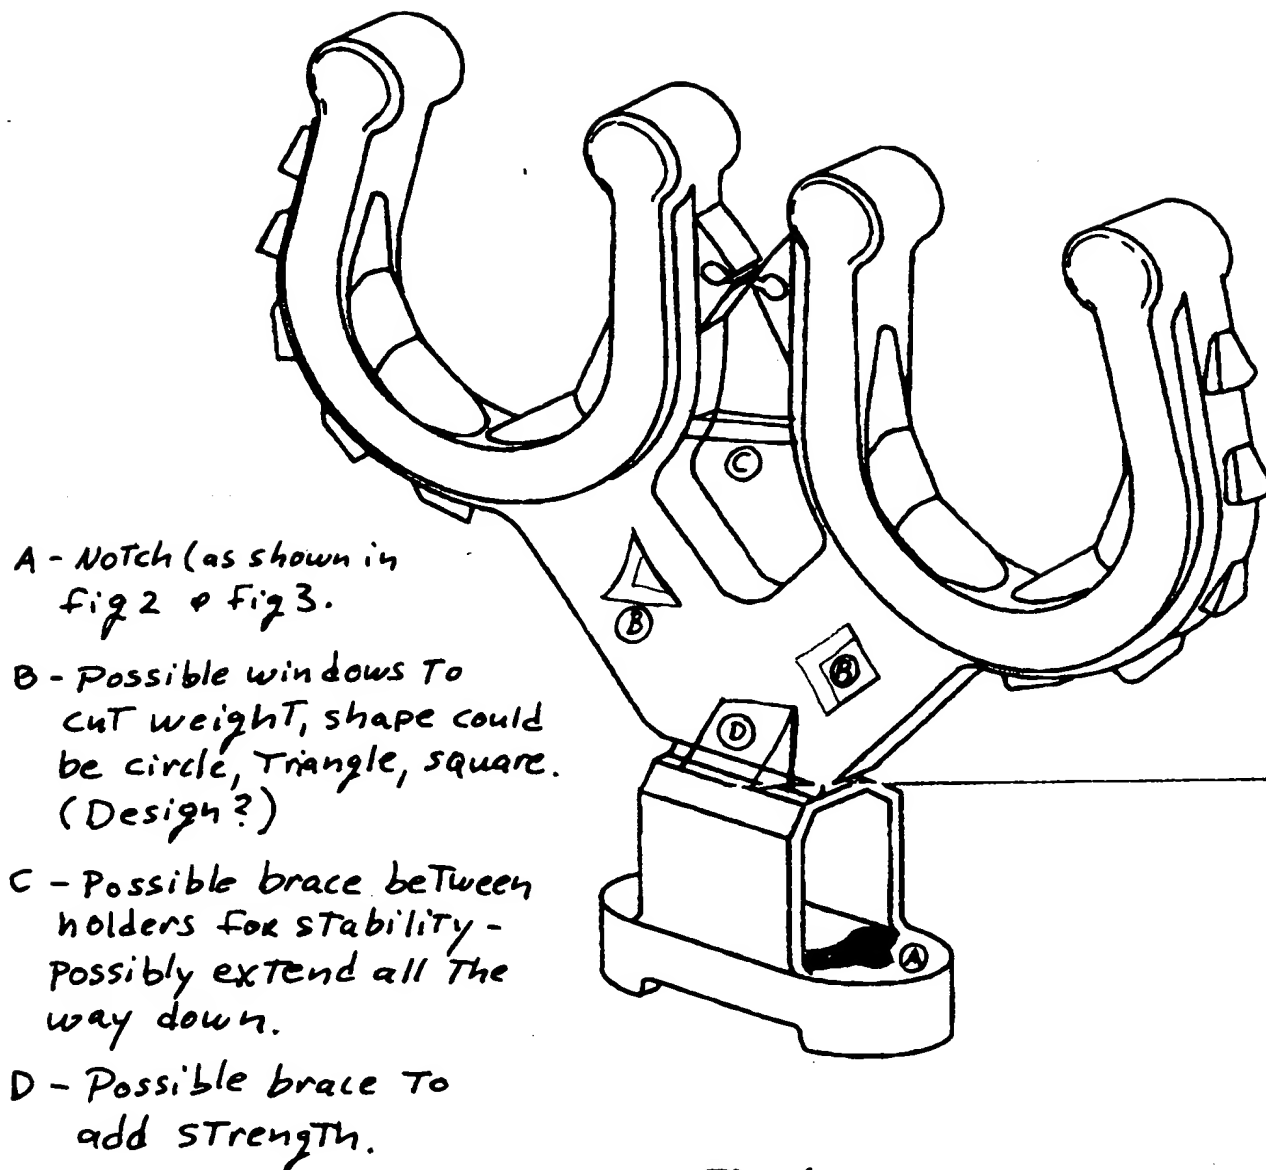 A - Notch (as shown in
fig 2 & fig 3.
B - Possible windows To
cuT weighT, shape could
be circle, Triangle, square.
(Design?)
C - Possible brace beTween
holders for sTabiliTy -
possibly exTend all The
way down.
D - Possible brace To
add sTrengTh.
C
B
B
D
A